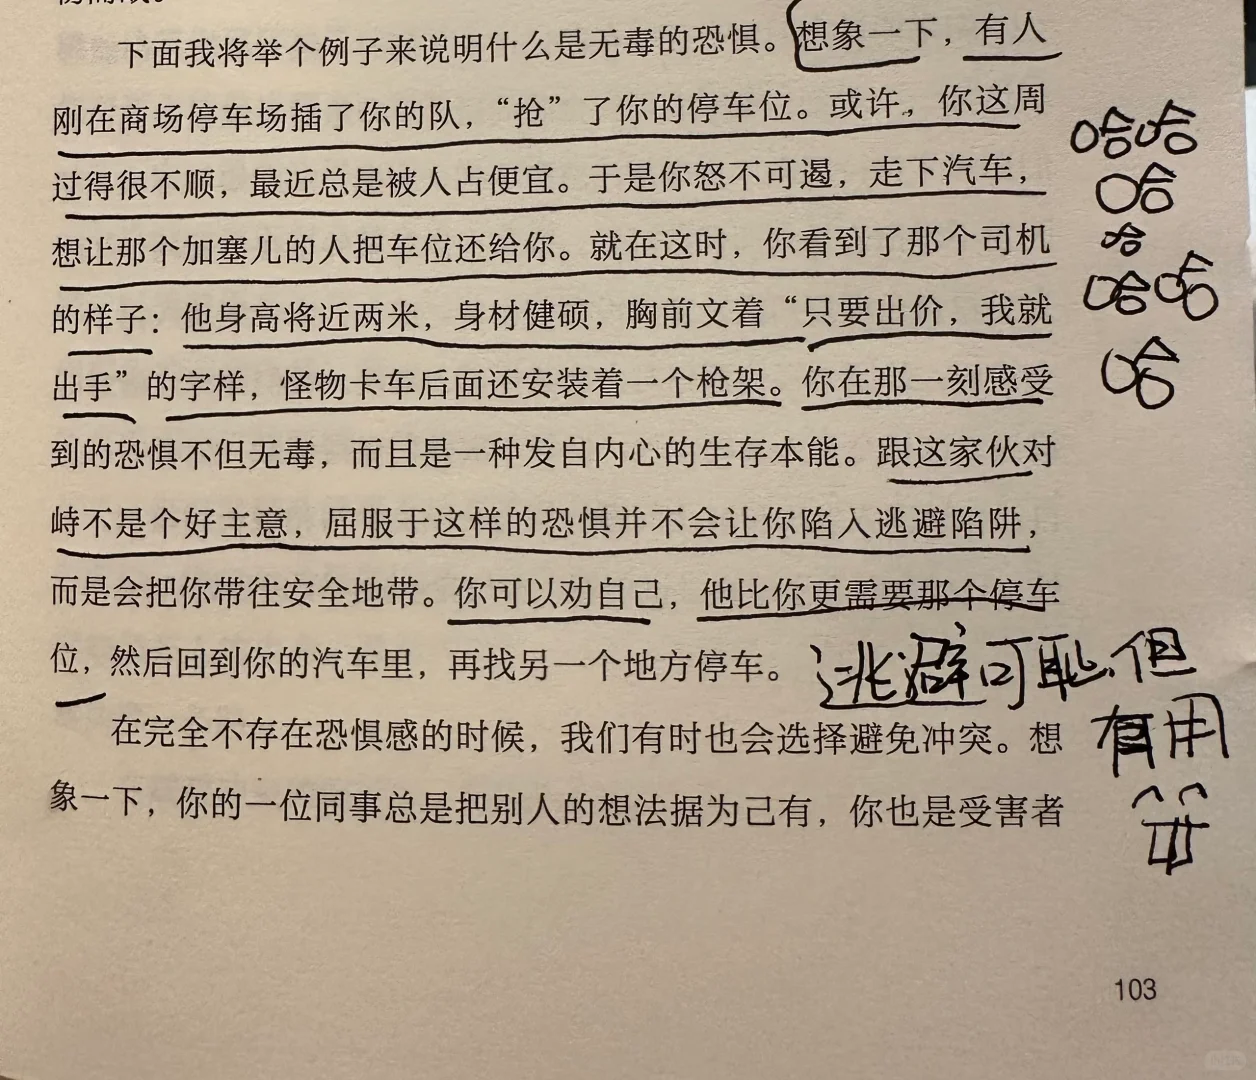 下面我将举个例子来说明什么是无毒的恐惧。想象一下，有人
刚在商场停车场插了你的队，“抢”了你的停车位。或许，你这周
过得很不顺，最近总是被人占便宜。于是你怒不可遏，走下汽车，
想让那个加塞儿的人把车位还给你。就在这时，你看到了那个司机
的样子：他身高将近两米，身材健硕，胸前文着“只要出价，我就
出手”的字样，怪物卡车后面还安装着一个枪架。你在那一刻感受
到的恐惧不但无毒，而且是一种发自内心的生存本能。跟这家伙对
峙不是个好主意，屈服于这样的恐惧并不会让你陷入逃避陷阱，
而是会把你带往安全地带。你可以劝自己，他比你更需要那个停车
位，然后回到你的汽车里，再找另一个地方停车。
在完全不存在恐惧感的时候，我们有时也会选择避免冲突。想
象一下，你的一位同事总是把别人的想法据为己有，你也是受害者
哈哈
哈
哈
哈哈
哈
逃避可耻，但
有用
103